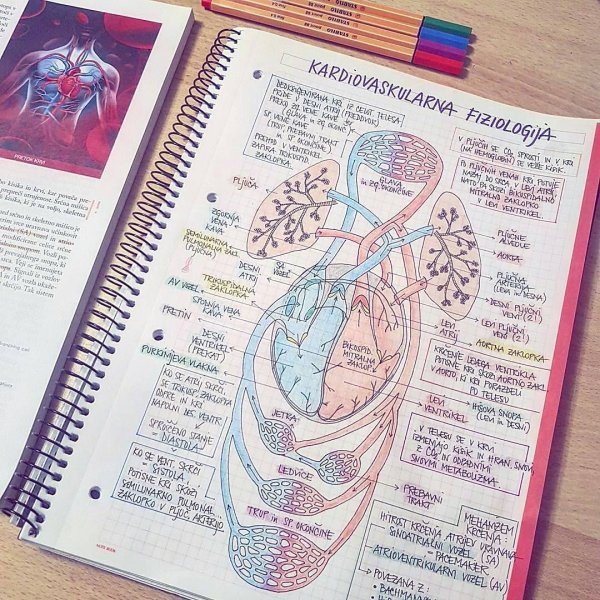 KARDIOVASKULARNA FIZIOLOGIJA
DEOKSIGENIRANA KRI IZ CELOT. TELESA
PRIDE V DESNI ATRIJ (PREDDVOR)
PREKO ZG. VENE KAVE
(GLAVA in ZG. OKONČ.)
SP. VENE KAVE
(TRUP, PREBAVNI TRAKT
in SP. OKONČINE)
PREHOD V VENTRIKEL
ZAPIRA TRIKUSPID.
ZAKLOPKA.
V PLJUČIH SE CO2 SPROSTI IN V KRI
(NA HEMOGLOBIN) SE VEŽE KISIK.
PO PLJUČNIH VENAH KRI POTUJE
NAZAJ DO SRCA, V LEVI ATRIJ
NATO PA SKOZI BIKUSPIDALNO
MITRALNO ZAKLOPKO
V LEVI VENTRIKEL
GLAVA
in ZG. OKONČINE
PLJUČA
ZGORNJA
VENA
KAVA
SEMILUNARNA
PULMONALNA ZAKL.
(PLJUČNA)
DESNI
ATRIJ
SA
VOZEL
AV VOZEL
TRIKUSPIDALNA
ZAKLOPKA
SPODNJA VENA
KAVA
PRETIN
DESNI
VENTRIKEL
(PREKAT)
PURKINIJEVA VLAKNA
PLJUČNE
ALVEOLE
AORTA
PLJUČNA
ARTERIJA
(LEVA in DESNA)
DESNI PLJUČNI
VENI (2!)
LEVI PLJUČNI
VENI (2!)
LEVI
ATRIJ
AORTNA ZAKLOPKA
BIKUSPID.
MITRALNA
ZAKLOP.
KRČENJE LEVEGA VENTRIKLA
POTISNE KRI SKOZI AORTNO ZAKL.
V AORTO, KI KRI PORAZDELI
PO TELESU
LEVI
VENTRIKEL
HISOVA SNOPA
(LEVI in DESNI)
KO SE ATRIJ SKRČI,
SE TRIKUSP. ZAKLOPKA
ODPRE IN KRI
NAPOLNI DES. VENTR.
SPROŠČENO STANJE
= DIASTOLA
KO SE VENT. SKRČI
= SISTOLA
POTISNE KRI SKOZI
SEMILUNARNO PULMONAL.
ZAKLOPKO V PLJUČ. ARTERIJO
JETRA
LEDVICE
TRUP in SP. OKONČINE
V TELESU SE V KRVI
IZMENJAJO KISIK IN HRAN. SNOVI
Z CO2 IN ODPADNIMI
SNOVMI METABOLIZMA.
PREBAVNI
TRAKT
MEHANIZEM
KRČENJA:
HITROST KRČENJA ATRIJEV URAVNAVA
SINOATRIALNI VOZEL (SA)
- PACEMAKER
ATRIOVENTRIKULARNI VOZEL (AV)
POVEZANA Z:
PRETOK KRVI
STABILO
STABILO
STABILO
STABILO